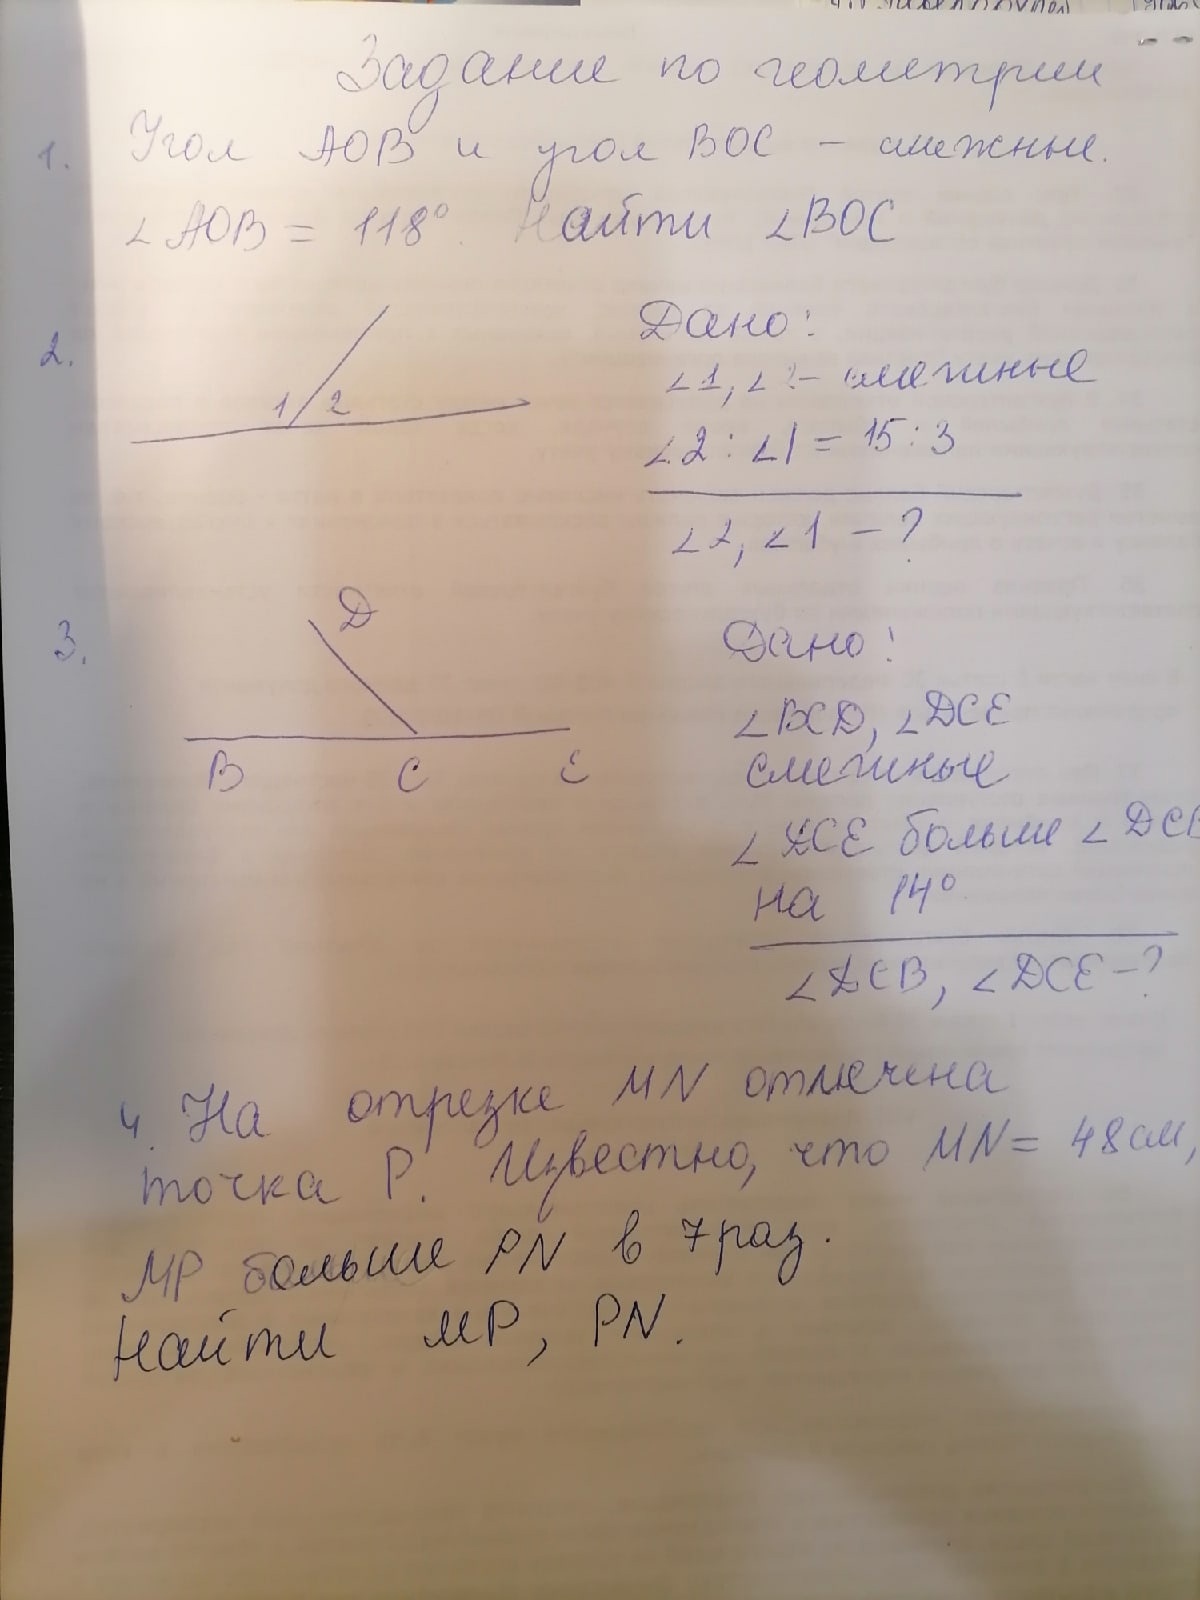 Задание по геометрии
1. Угол АОВ и угол ВОС – смежные.
∠АОВ = 118°. Найти ∠ВОС
2.
1 2
Дано:
∠1, ∠2 – смежные
∠2 : ∠1 = 15 : 3
∠2, ∠1 – ?
3.
D
B C E
Дано:
∠BCD, ∠DCE
смежные
∠DCE больше ∠DCB
на 14°
∠DCB, ∠DCE – ?
4. На отрезке MN отмечена
точка P. Известно, что MN = 48 см,
MP больше PN в 7 раз.
Найти MP, PN.